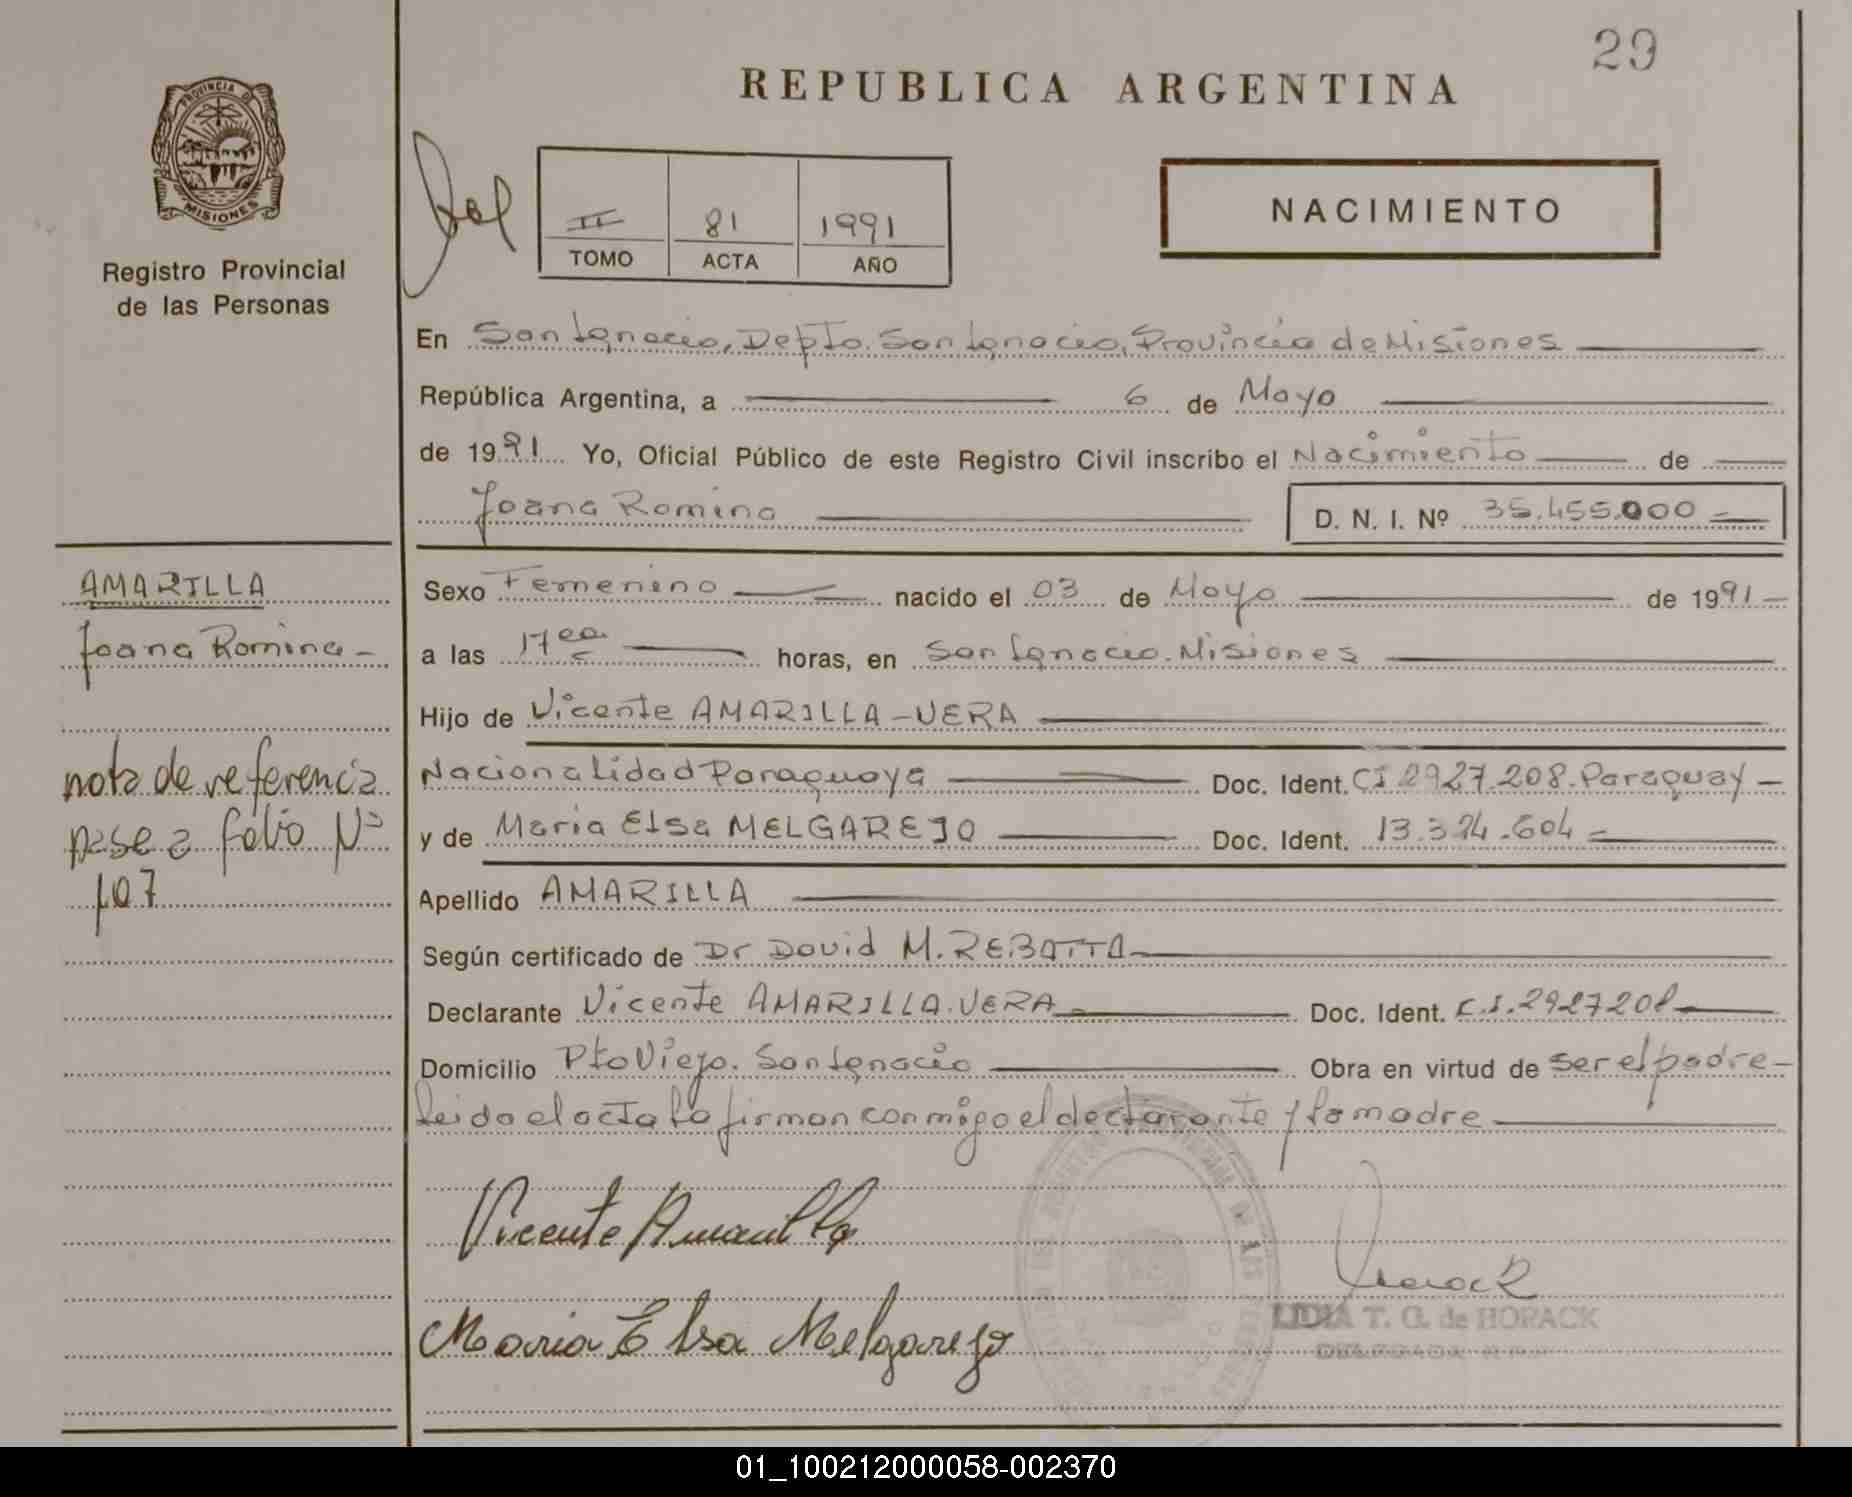 29
REPUBLICA ARGENTINA
PROVINCIA DE
MISIONES
Registro Provincial
de las Personas
II 81 1991
TOMO ACTA AÑO
NACIMIENTO
En San Ignacio, Depto. San Ignacio, Provincia de Misiones
República Argentina, a 6 de Mayo
de 1991 Yo, Oficial Público de este Registro Civil inscribo el Nacimiento de
Joana Romina D. N. I. Nº 35.455.000
AMARILLA
Joana Romina
nota de referencia
pase a folio Nº
107
Sexo Femenino nacido el 03 de Mayo de 1991
a las 17 horas, en San Ignacio. Misiones
Hijo de Vicente AMARILLA-VERA
Nacionalidad Paraguaya Doc. Ident. CI 2927.208. Paraguay
y de Maria Elsa MELGAREJO Doc. Ident. 13.374.604
Apellido AMARILLA
Según certificado de Dr David M. REBATTA
Declarante Vicente AMARILLA.VERA Doc. Ident. C.I. 2927208
Domicilio Pto Viejo. San Ignacio Obra en virtud de ser el padre
leida el acta la firman conmigo el declarante y la madre
Vicente Amarilla
Maria Elsa Melgarejo
LIDIA T. G. de HORACK
01_100212000058-002370